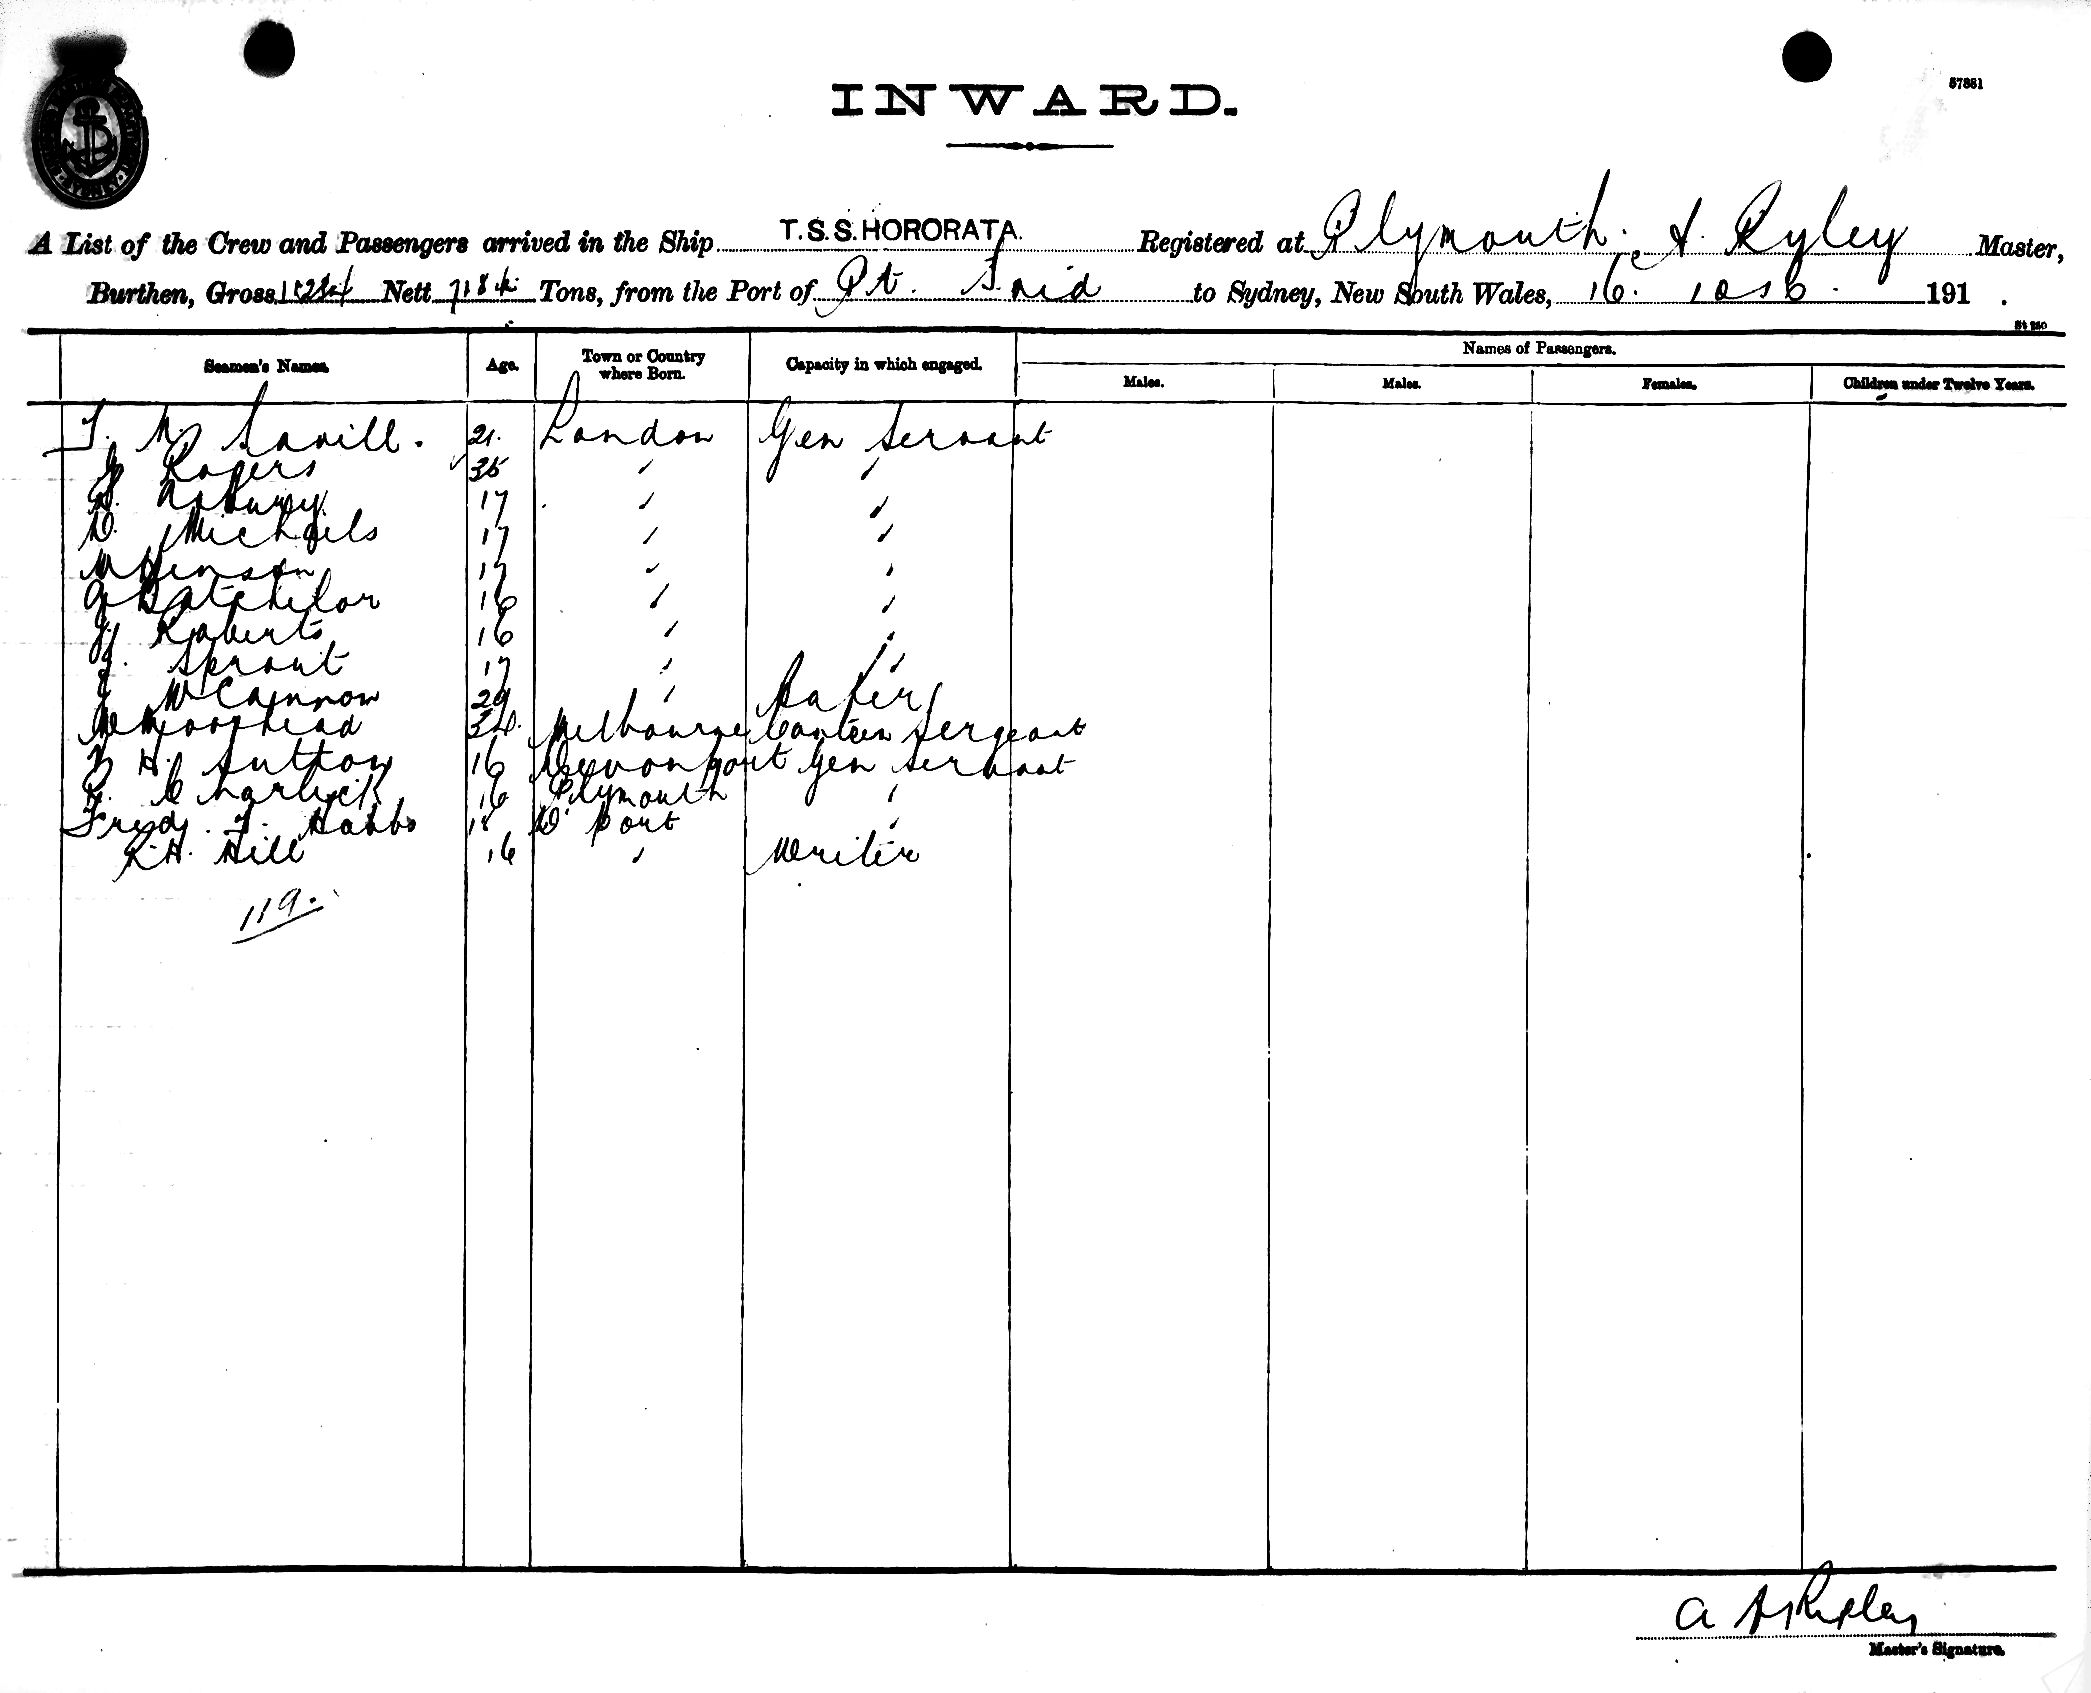 INWARD.
57881
A List of the Crew and Passengers arrived in the Ship T.S.S. HORORATA. Registered at Plymouth. A. Ryley Master,
Burthen, Gross Nett Tons, from the Port of Pt. Said to Sydney, New South Wales, 16. 191 .
Seamen's Names. Age. Town or Country where Born. Capacity in which engaged. Names of Passengers.
Males. Males. Females. Children under Twelve Years.
Savill. 21. London Gen Servant
Rogers 35 " "
Asbury. 17 " "
D. Michaels 17 " "
17 " "
Batchelor 16 " "
J. Roberts 16 " "
J. Sprout 17 " "
J. McCannon 29 " Baker
Moorhead 34. Melbourne Canteen Sergeant
H. Sutton 16 Devonport Gen Servant
16 Plymouth "
Fredj. J. Hobbs 18 D. Port "
R.H. Hill 16 " Writer
119.
Master's Signature.
SYDNEY